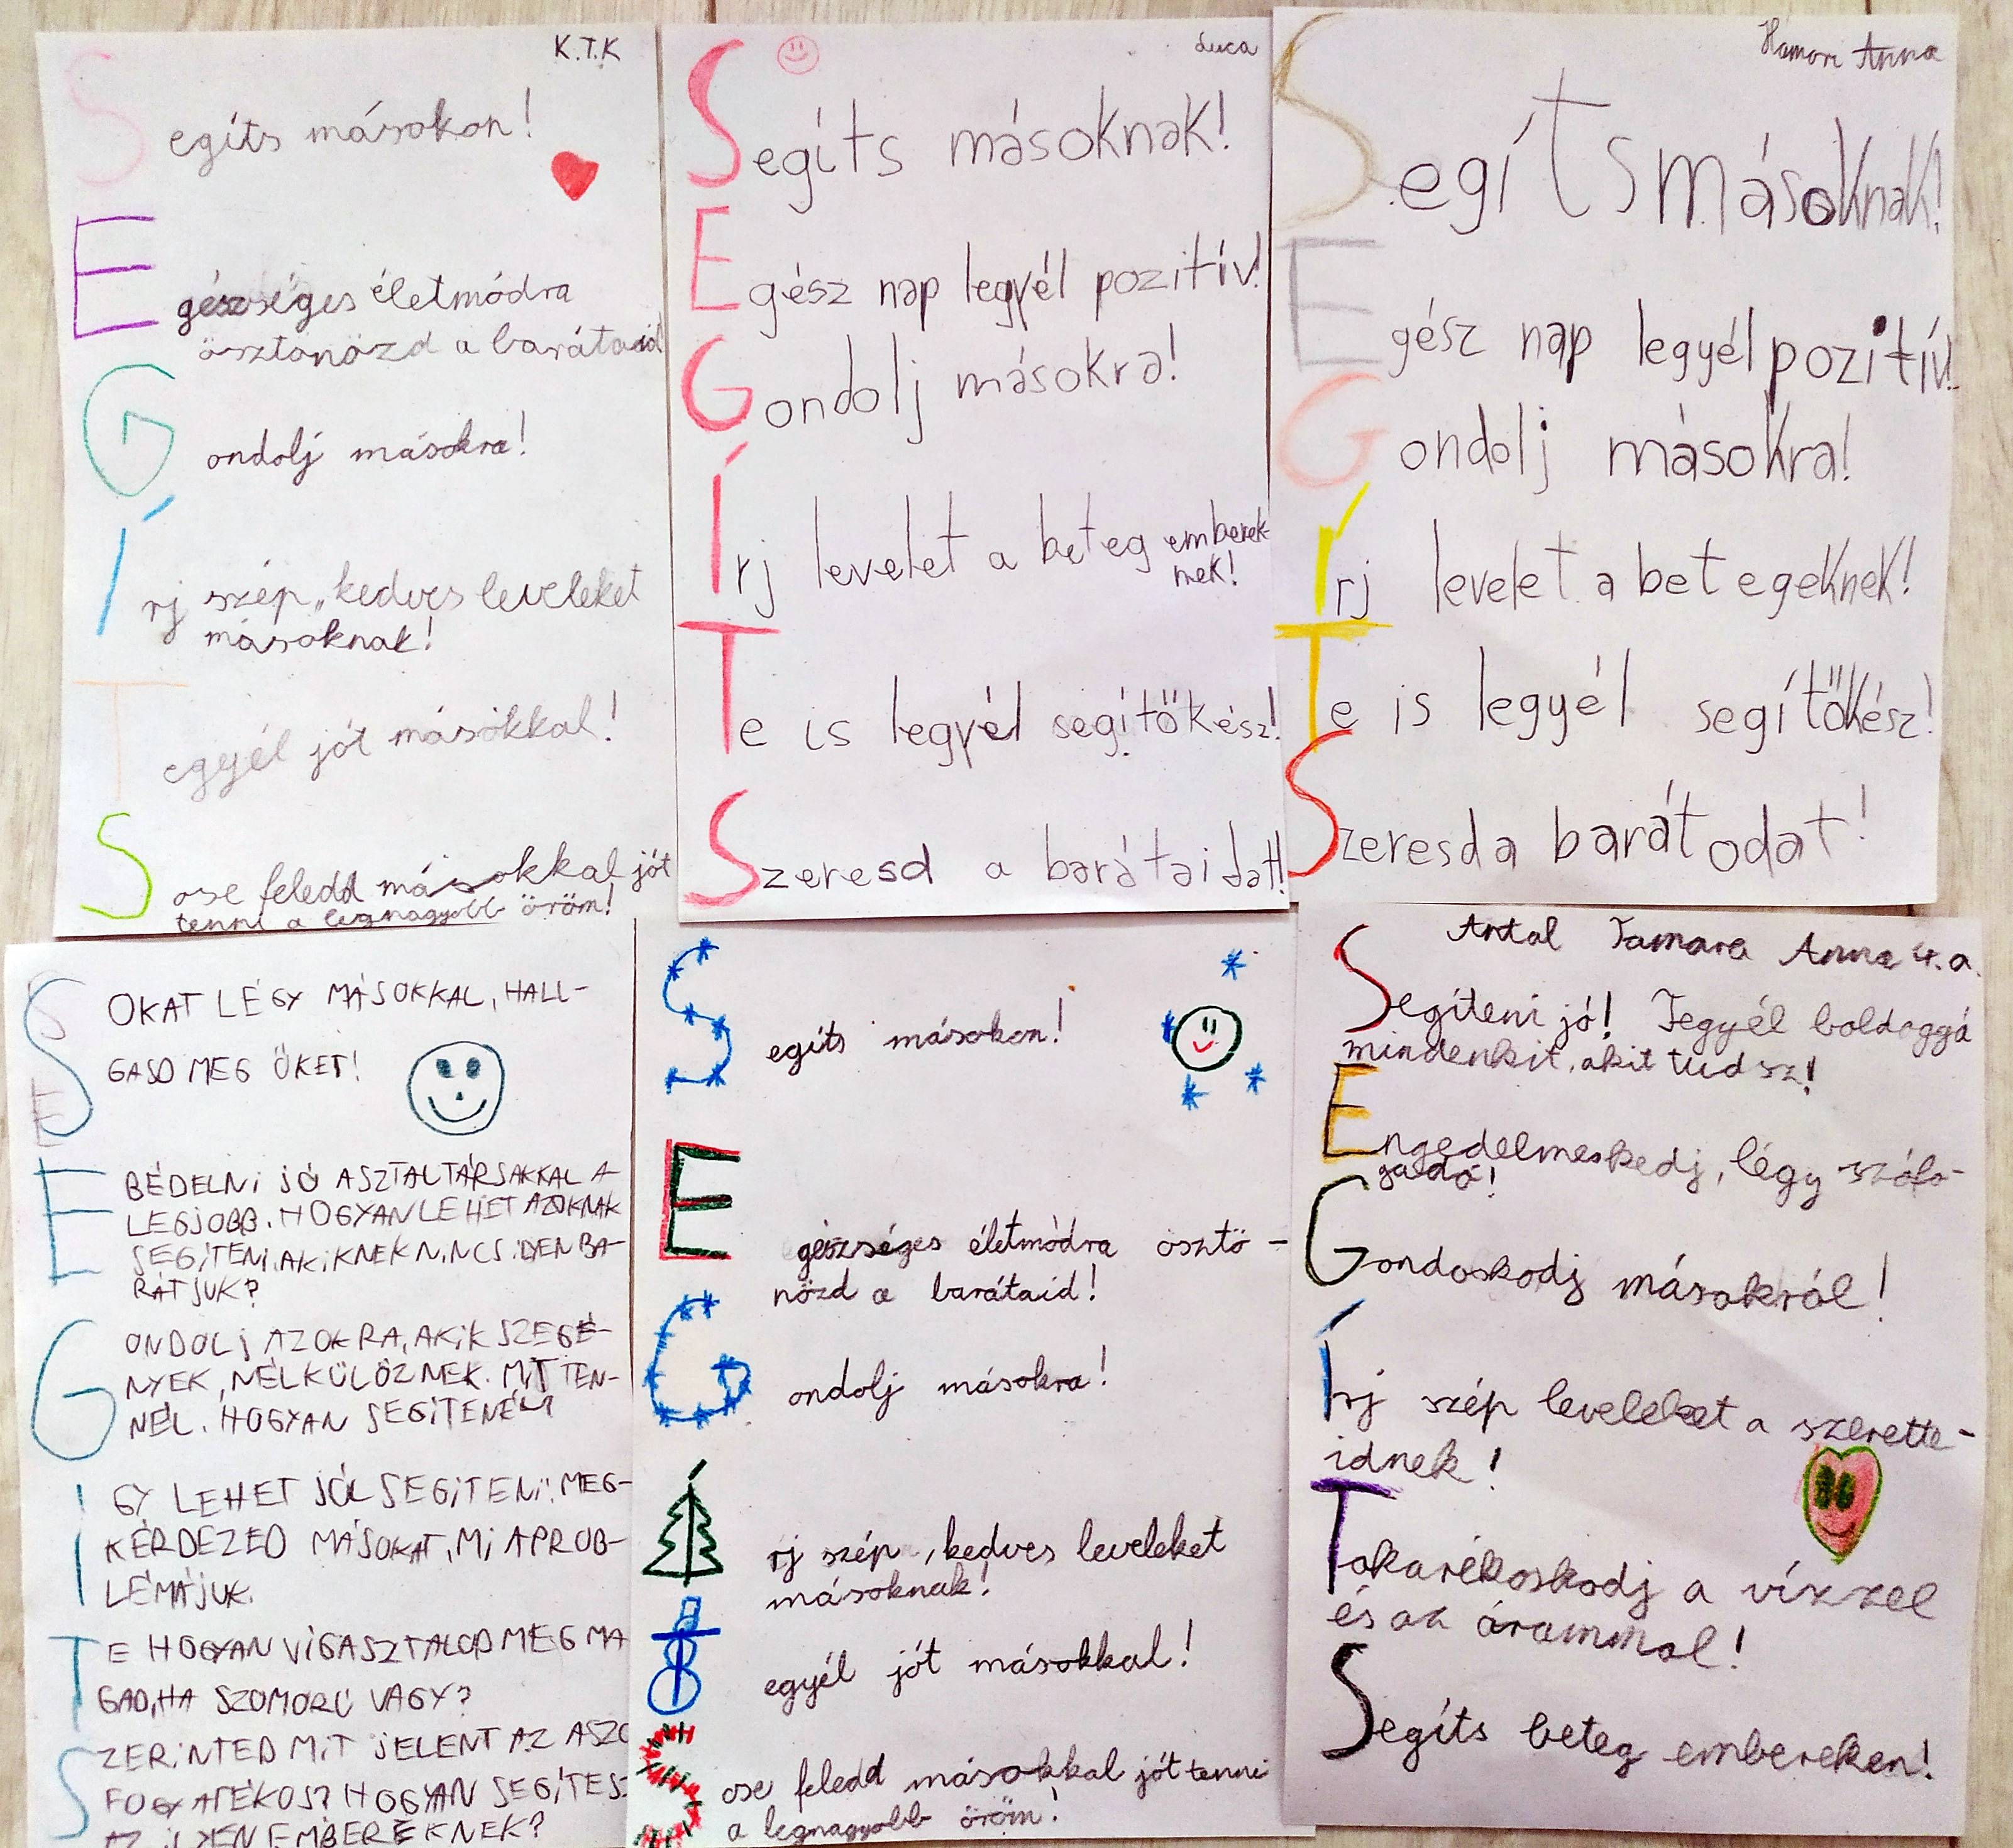 K.T.K
Segíts másokon!
Egészséges életmódra
ösztönözd a barátaid
Gondolj másokra!
Írj szép, kedves leveleket
másoknak!
Tegyél jót másokkal!
Sose feledd másokkal jót
tenni a legnagyobb öröm!
Luca
Segíts másoknak!
Egész nap legyél pozitív!
Gondolj másokra!
Írj levelet a beteg emberek-
nek!
Te is legyél segítőkész!
Szeresd a barátaidat!
Hámori Anna
Segíts másoknak!
Egész nap legyél pozitív!
Gondolj másokra!
Írj levelet a betegeknek!
Te is legyél segítőkész!
Szeresd a barátodat!
SOKAT LÉGY MÁSOKKAL, HALL-
GASD MEG ŐKET!
EBÉDELNI JÓ ASZTALTÁRSAKKAL A
LEGJOBB. HOGYAN LEHET AZOKNAK
SEGÍTENI, AKIKNEK NINCS IDEN BA-
RÁTJUK?
GONDOLJ AZOKRA, AKIK SZEGÉ-
NYEK, NÉLKÜLÖZNEK. MIT TEN-
NÉL. HOGYAN SEGÍTENÉL?
ÍGY LEHET JÓL SEGÍTENI: MEG-
KÉRDEZED MÁSOKAT, MI A PROB-
LÉMÁJUK.
TE HOGYAN VIGASZTALOD MEG MA
GAD, HA SZOMORÚ VAGY?
SZERINTED MIT JELENT AZ A SZÓ
FOGYATÉKOS? HOGYAN SEGÍTESZ
AZ ILYEN EMBEREKNEK?
Segíts másokon!
Egészséges életmódra ösztö-
nözd a barátaid!
Gondolj másokra!
Írj szép, kedves leveleket
másoknak!
Tegyél jót másokkal!
Sose feledd másokkal jót tenni
a legnagyobb öröm!
Antal Tamara Anna 4.a.
Segíteni jó! Tegyél boldoggá
mindenkit, akit tudsz!
Engedelmeskedj, légy szófo-
gadó!
Gondoskodj másokról!
Írj szép leveleket a szerette-
idnek!
Takarékoskodj a vízzel
és az árammal!
Segíts beteg embereken!